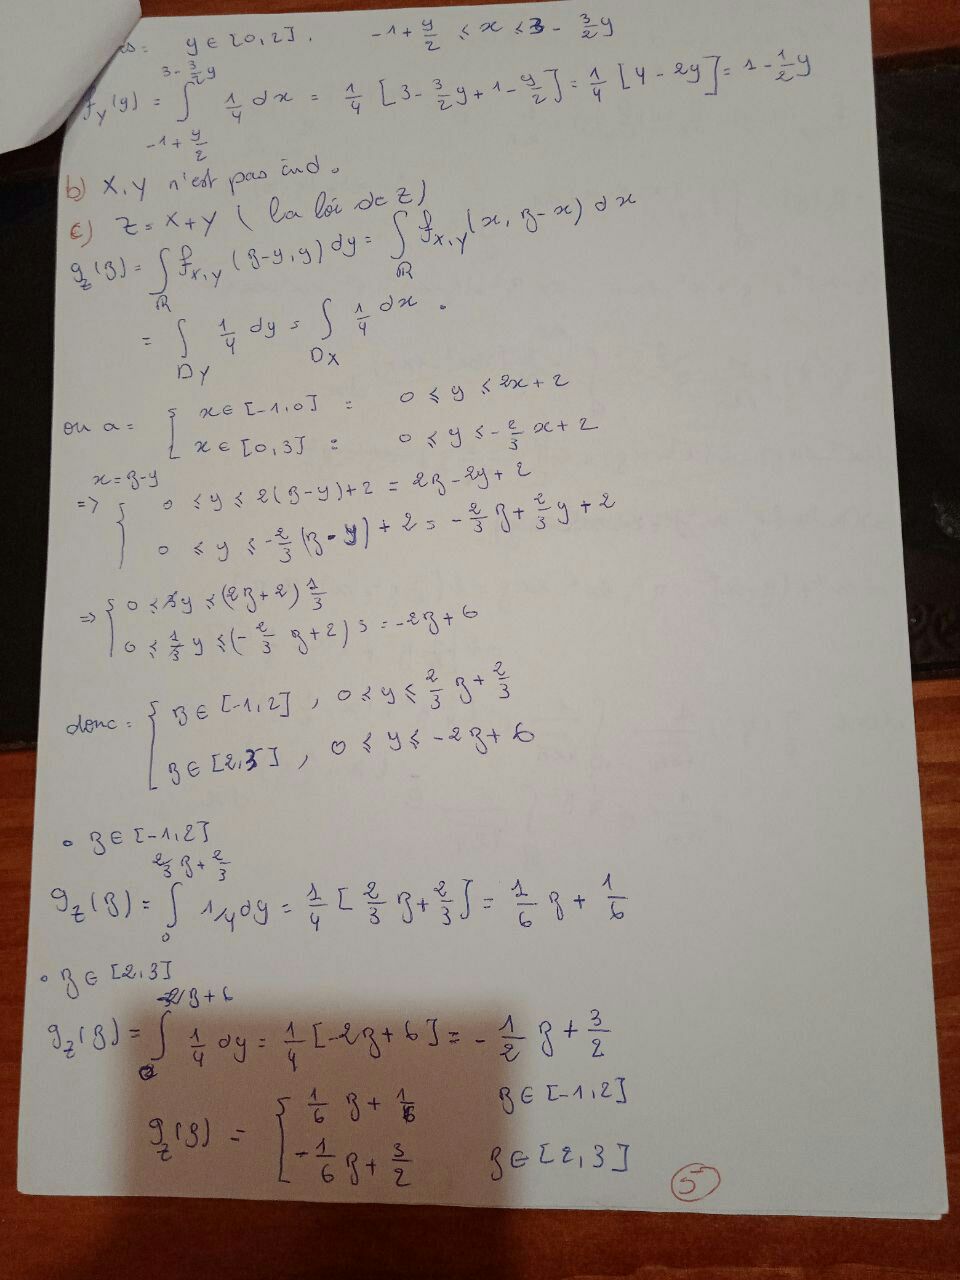 y ∈ [0,2]. -1+y/2 ≤ x ≤ 3 - 3/2 y
f_Y(y) = ∫_{-1+y/2}^{3-3/2 y} 1/4 dx = 1/4 [3 - 3/2 y + 1 - y/2] = 1/4 [4 - 2y] = 1 - 1/2 y
b) X,Y n'est pas ind.
c) Z = X+Y ( la loi de Z)
g_Z(z) = ∫_ℝ f_{X,Y}(z-y, y) dy = ∫_ℝ f_{X,Y}(x, z-x) dx
= ∫_{DY} 1/4 dy = ∫_{DX} 1/4 dx .
on a = { x ∈ [-1,0] = 0 ≤ y ≤ 2x+2
x ∈ [0,3] = 0 ≤ y ≤ -2/3 x + 2
x = z-y
=> { 0 ≤ y ≤ 2(z-y)+2 = 2z-2y+2
0 ≤ y ≤ -2/3 (z-y) + 2 = -2/3 z + 2/3 y + 2
=> { 0 ≤ y ≤ (2z+2) 1/3
0 ≤ 1/3 y ≤ (-2/3 z+2) 3 = -2z+6
donc = { z ∈ [-1,2] , 0 ≤ y ≤ 2/3 z + 2/3
z ∈ [2,3] , 0 ≤ y ≤ -2z+6
• z ∈ [-1,2]
g_Z(z) = ∫_0^{2/3 z + 2/3} 1/4 dy = 1/4 [2/3 z + 2/3] = 1/6 z + 1/6
• z ∈ [2,3]
g_Z(z) = ∫_0^{-2z+6} 1/4 dy = 1/4 [-2z+6] = -1/2 z + 3/2
g_Z(z) = { 1/6 z + 1/6 z ∈ [-1,2]
-1/6 z + 3/2 z ∈ [2,3]
5